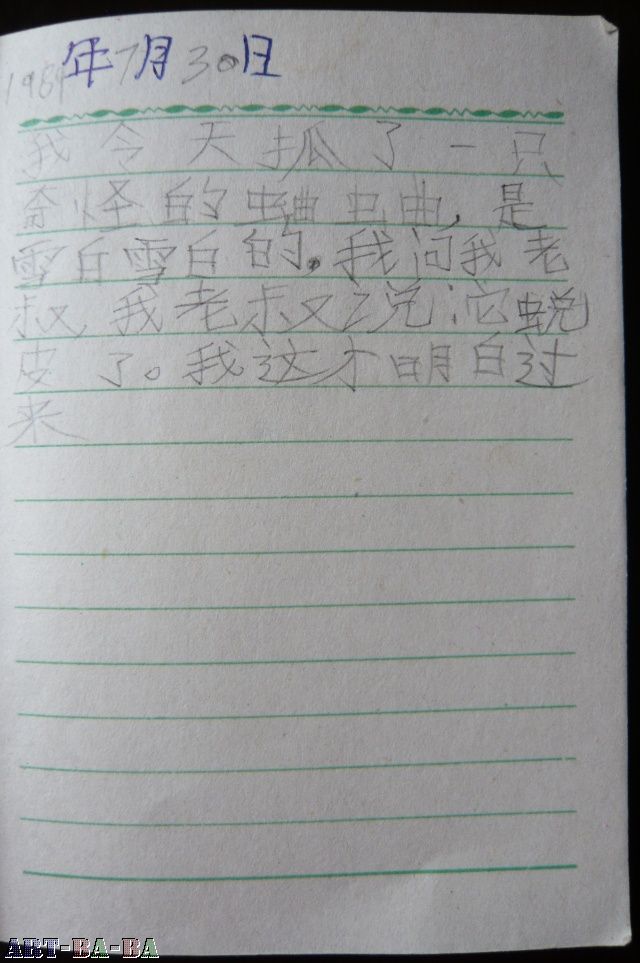 1989年7月30日
我今天抓了一只
奇怪的蛐蛐,是
雪白雪白的。我问我老
叔,我老叔说:它蜕
皮了。我这才明白过
来
ART-BA-BA